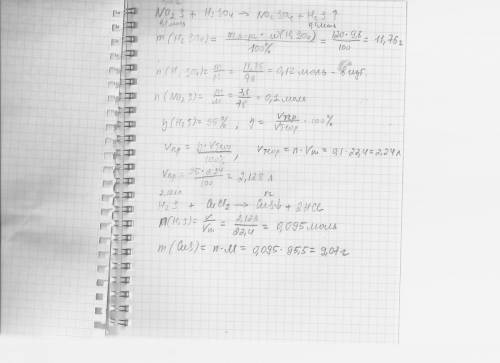 Na₂S + H₂SO₄ → Na₂SO₄ + H₂S↑
0,1 моль 0,1 моль
m(H₂SO₄) = m р-ра · w(H₂SO₄) / 100% = 120 · 9,8 / 100 = 11,76 г
n(H₂SO₄) = m/M = 11,76/98 = 0,12 моль - изб.
n(Na₂S) = m/M = 7,8/78 = 0,1 моль
η(H₂S) = 95%, η = Vпр/Vтеор · 100%
Vпр = η · Vтеор / 100%, Vтеор = n · Vm = 0,1 · 22,4 = 2,24 л
Vпр = 95 · 2,24 / 100 = 2,128 л
2,128 л
H₂S + CuCl₂ → CuS↓ + 2HCl
n(H₂S) = V/Vm = 2,128/22,4 = 0,095 моль
m(CuS) = n · M = 0,095 · 95,5 = 9,07 г